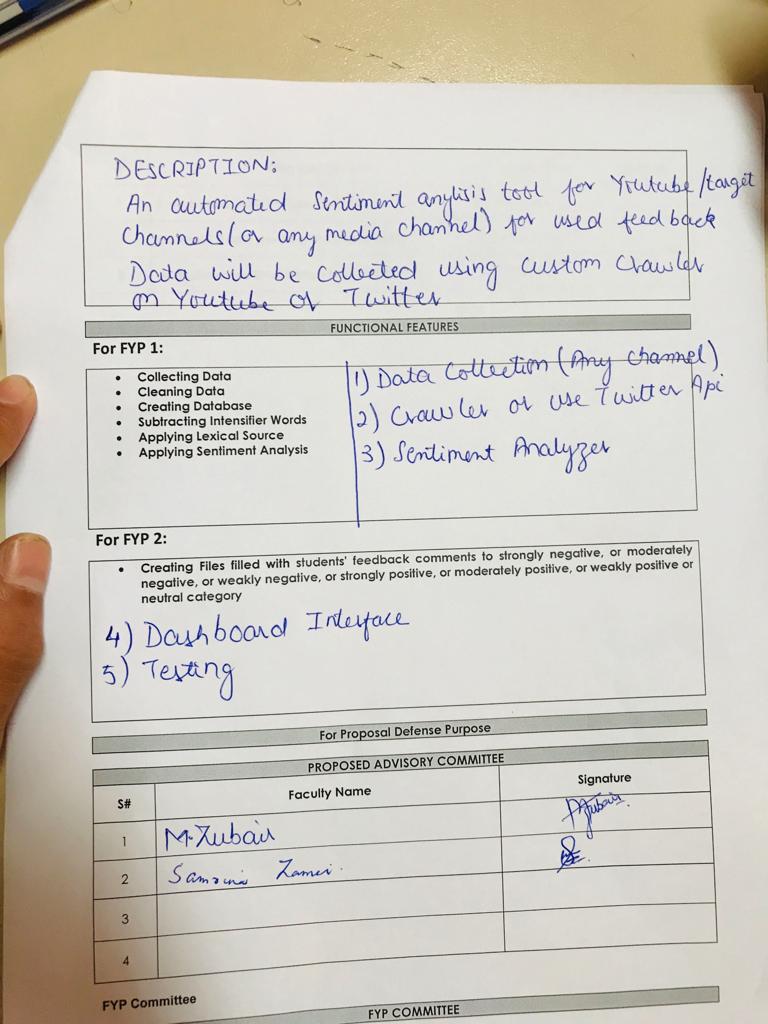 DESCRIPTION:
An automated Sentiment anylisis tool for Youtube/target
Channels (or any media channel) for used feedback
Data will be Collected using custom Crawler
on Youtube or Twitter
FUNCTIONAL FEATURES
For FYP 1:
• Collecting Data
• Cleaning Data
• Creating Database
• Subtracting Intensifier Words
• Applying Lexical Source
• Applying Sentiment Analysis
1) Data Collection (Any channel)
2) Crawler or use Twitter Api
3) Sentiment Analyzer
For FYP 2:
• Creating Files filled with students' feedback comments to strongly negative, or moderately
negative, or weakly negative, or strongly positive, or moderately positive, or weakly positive or
neutral category
4) Dashboard Interface
5) Testing
For Proposal Defense Purpose
PROPOSED ADVISORY COMMITTEE
S# Faculty Name Signature
1 M. Zubair Zubair
2
3
4
FYP Committee
FYP COMMITTEE